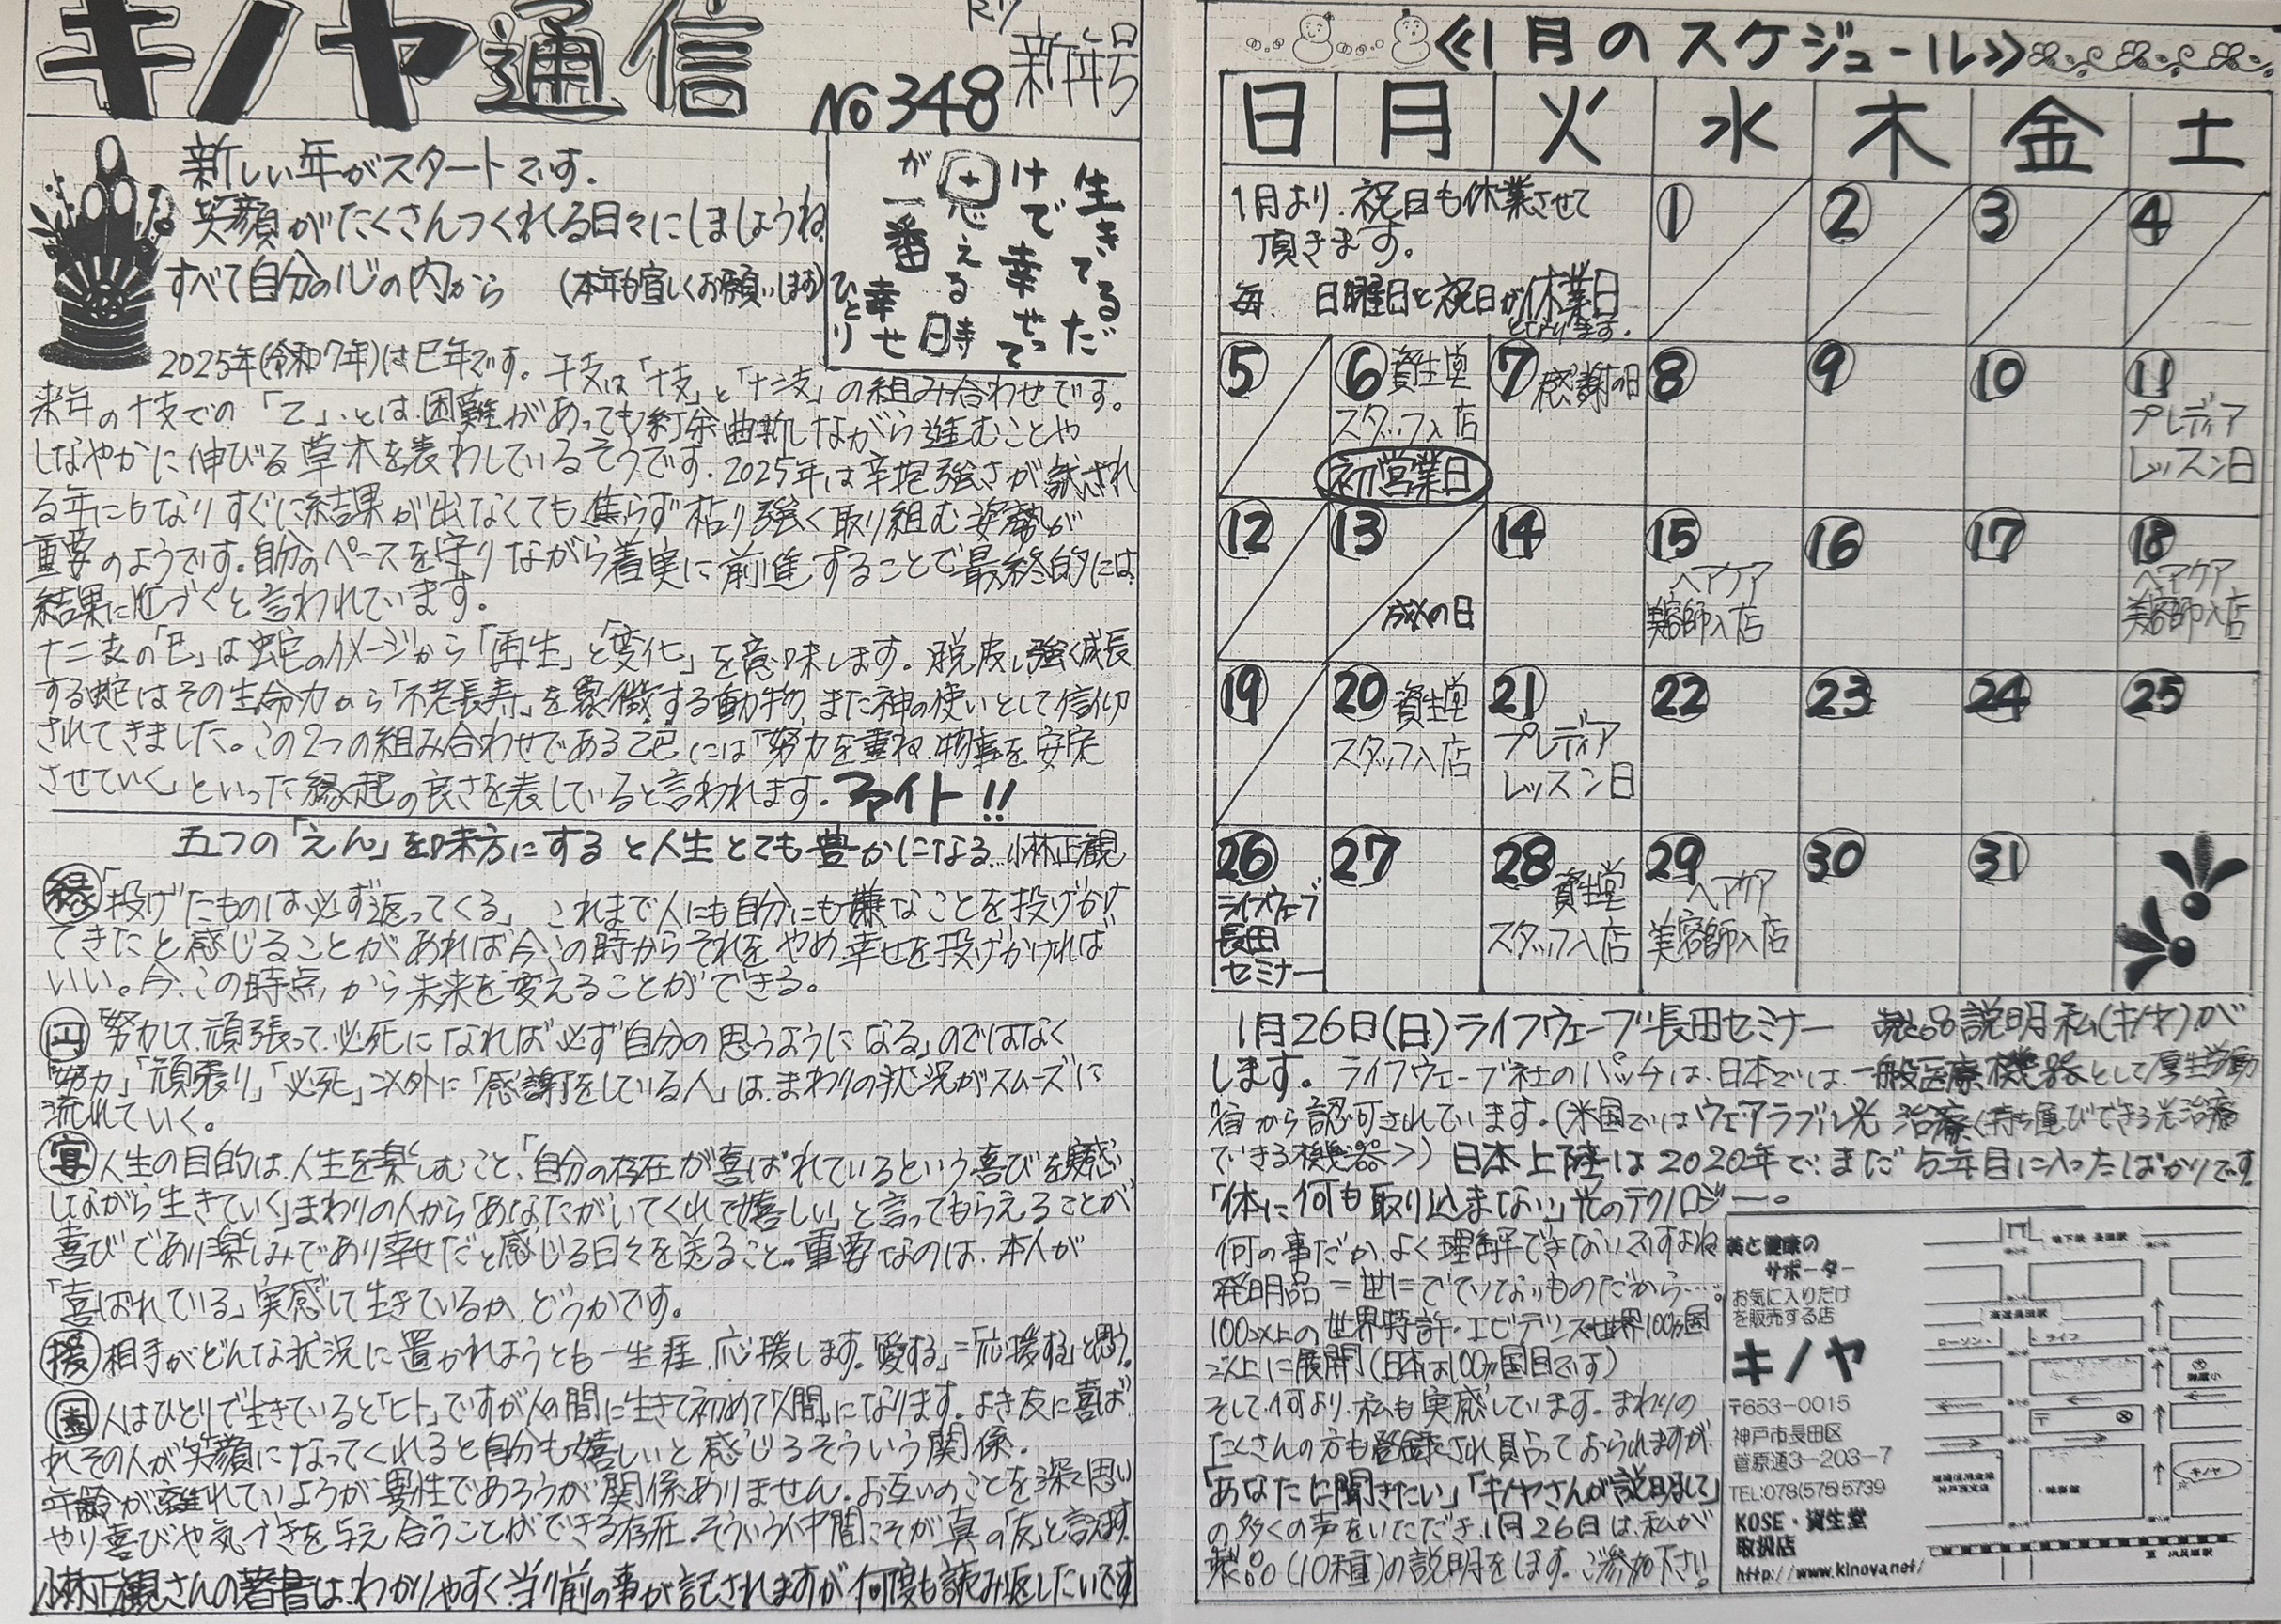 キノヤ通信
No 348
新年号
新しい年がスタートです.
笑顔がたくさんつくれる日々にしましょうね
すべて自分の心の内から (本年も宜しくお願いします)
生きてるだ
けで幸せって
思える時
が一番幸せ
ひとり
2025年(令和7年)は巳年です。干支は「十支」と「十二支」の組み合わせです。
来年の十支での「乙」とは.困難があっても紆余曲折しながら進むことや
しなやかに伸びる草木を表わしているそうです.2025年は辛抱強さが試され
る年にもなりすぐに結果が出なくても焦らず粘り強く取り組む姿勢が
重要のようです.自分のペースを守りながら着実に前進することで最終的には
結果に近づくと言われています.
十二支の「巳」は蛇のイメージから「再生」と「変化」を意味します.脱皮し強く成長
する蛇はその生命力から「不老長寿」を象徴する動物 また神の使いとして信仰
されてきました。この2つの組み合わせである乙巳には「努力を重ね.物事を安定
させていく」といった縁起の良さを表していると言われます.ファイト!!
五つの「えん」を味方にすると人生とても豊かになる…小林正観
縁「投げたものは必ず返ってくる」 これまで人にも自分にも嫌なことを投げかけ
てきたと感じることがあれば今、この時からそれをやめ幸せを投げかければ
いい。今、この時点から未来を変えることができる。
円「努力して.頑張って.必死になれば必ず自分の思うようになる」のではなく
「努力」「頑張り」「必死」以外に「感謝をしている人」は.まわりの状況がスムーズに
流れていく。
宴 人生の目的は.人生を楽しむこと、「自分の存在が喜ばれているという喜びを実感
しながら生きていく」まわりの人から「あなたがいてくれて嬉しい」と言ってもらえることが
喜びであり楽しみであり幸せだと感じる日々を送ること。重要なのは.本人が
「喜ばれている」実感して生きているか どうかです。
援 相手がどんな状況に置かれようとも一生涯.応援します.「愛する」=「応援する」と思う。
園 人はひとりで生きていると「ヒト」ですが人の間に生きて初めて「人間」になります.よき友に喜ば
れその人が笑顔になってくれると自分も嬉しいと感じるそういう関係.
年齢が離れていようが異性であろうが関係ありません.お互いのことを深く思い
やり喜びや気づきを与え合うことができる存在.そういう仲間こそが真の「友」と言えます.
小林正観さんの著書は、わかりやすく当り前の事が記されますが何度も読み返したいです
≪1月のスケジュール≫
日 月 火 水 木 金 土
1月より.祝日も休業させて
頂きます。
毎 日曜日と祝日が休業日
となります.
1 2 3 4
5 6 資生堂 スタッフ入店 初営業日 7 感謝の日 8 9 10 11 プレディア レッスン日
12 13 成人の日 14 15 ヘアケア 美容師入店 16 17 18 ヘアケア 美容師入店
19 20 資生堂 スタッフ入店 21 プレディア レッスン日 22 23 24 25
26 ライフウェーブ 長田 セミナー 27 28 資生堂 スタッフ入店 29 ヘアケア 美容師入店 30 31
1月26日(日)ライフウェーブ長田セミナー 製品説明 私(キノヤ)が
します。ライフウェーブ社のパッチは.日本では.一般医療機器として厚生労働
省から認可されています.(米国ではウェアラブル光治療<持ち運びできる光治療
できる機器>)日本上陸は2020年で.まだ5年目に入ったばかりです.
「体に何も取り込まない」光のテクノロジー。
何の事だか.よく理解できないですよね
発明品=世にでていないものだから…。
100以上の世界特許・エビデンス世界100ヶ国
以上に展開(日本は100ヶ国目です)
そして何より.私も実感しています.まわりの
たくさんの方も登録され貼っておられますが.
「あなたに聞きたい」「キノヤさんが説明して」
の多くの声をいただき.1月26日は.私が
製品(10種)の説明をします。ご参加下さい!
美と健康の
サポーター
お気に入りだけ
を販売する店
キノヤ
〒653-0015
神戸市長田区
菅原通3-203-7
TEL:078(575)5739
KOSE・資生堂
取扱店
http://www.kinoya.net/
地下鉄 長田駅
高速長田駅
ローソン
ライフ
御蔵小
〒
キノヤ
JR兵庫駅